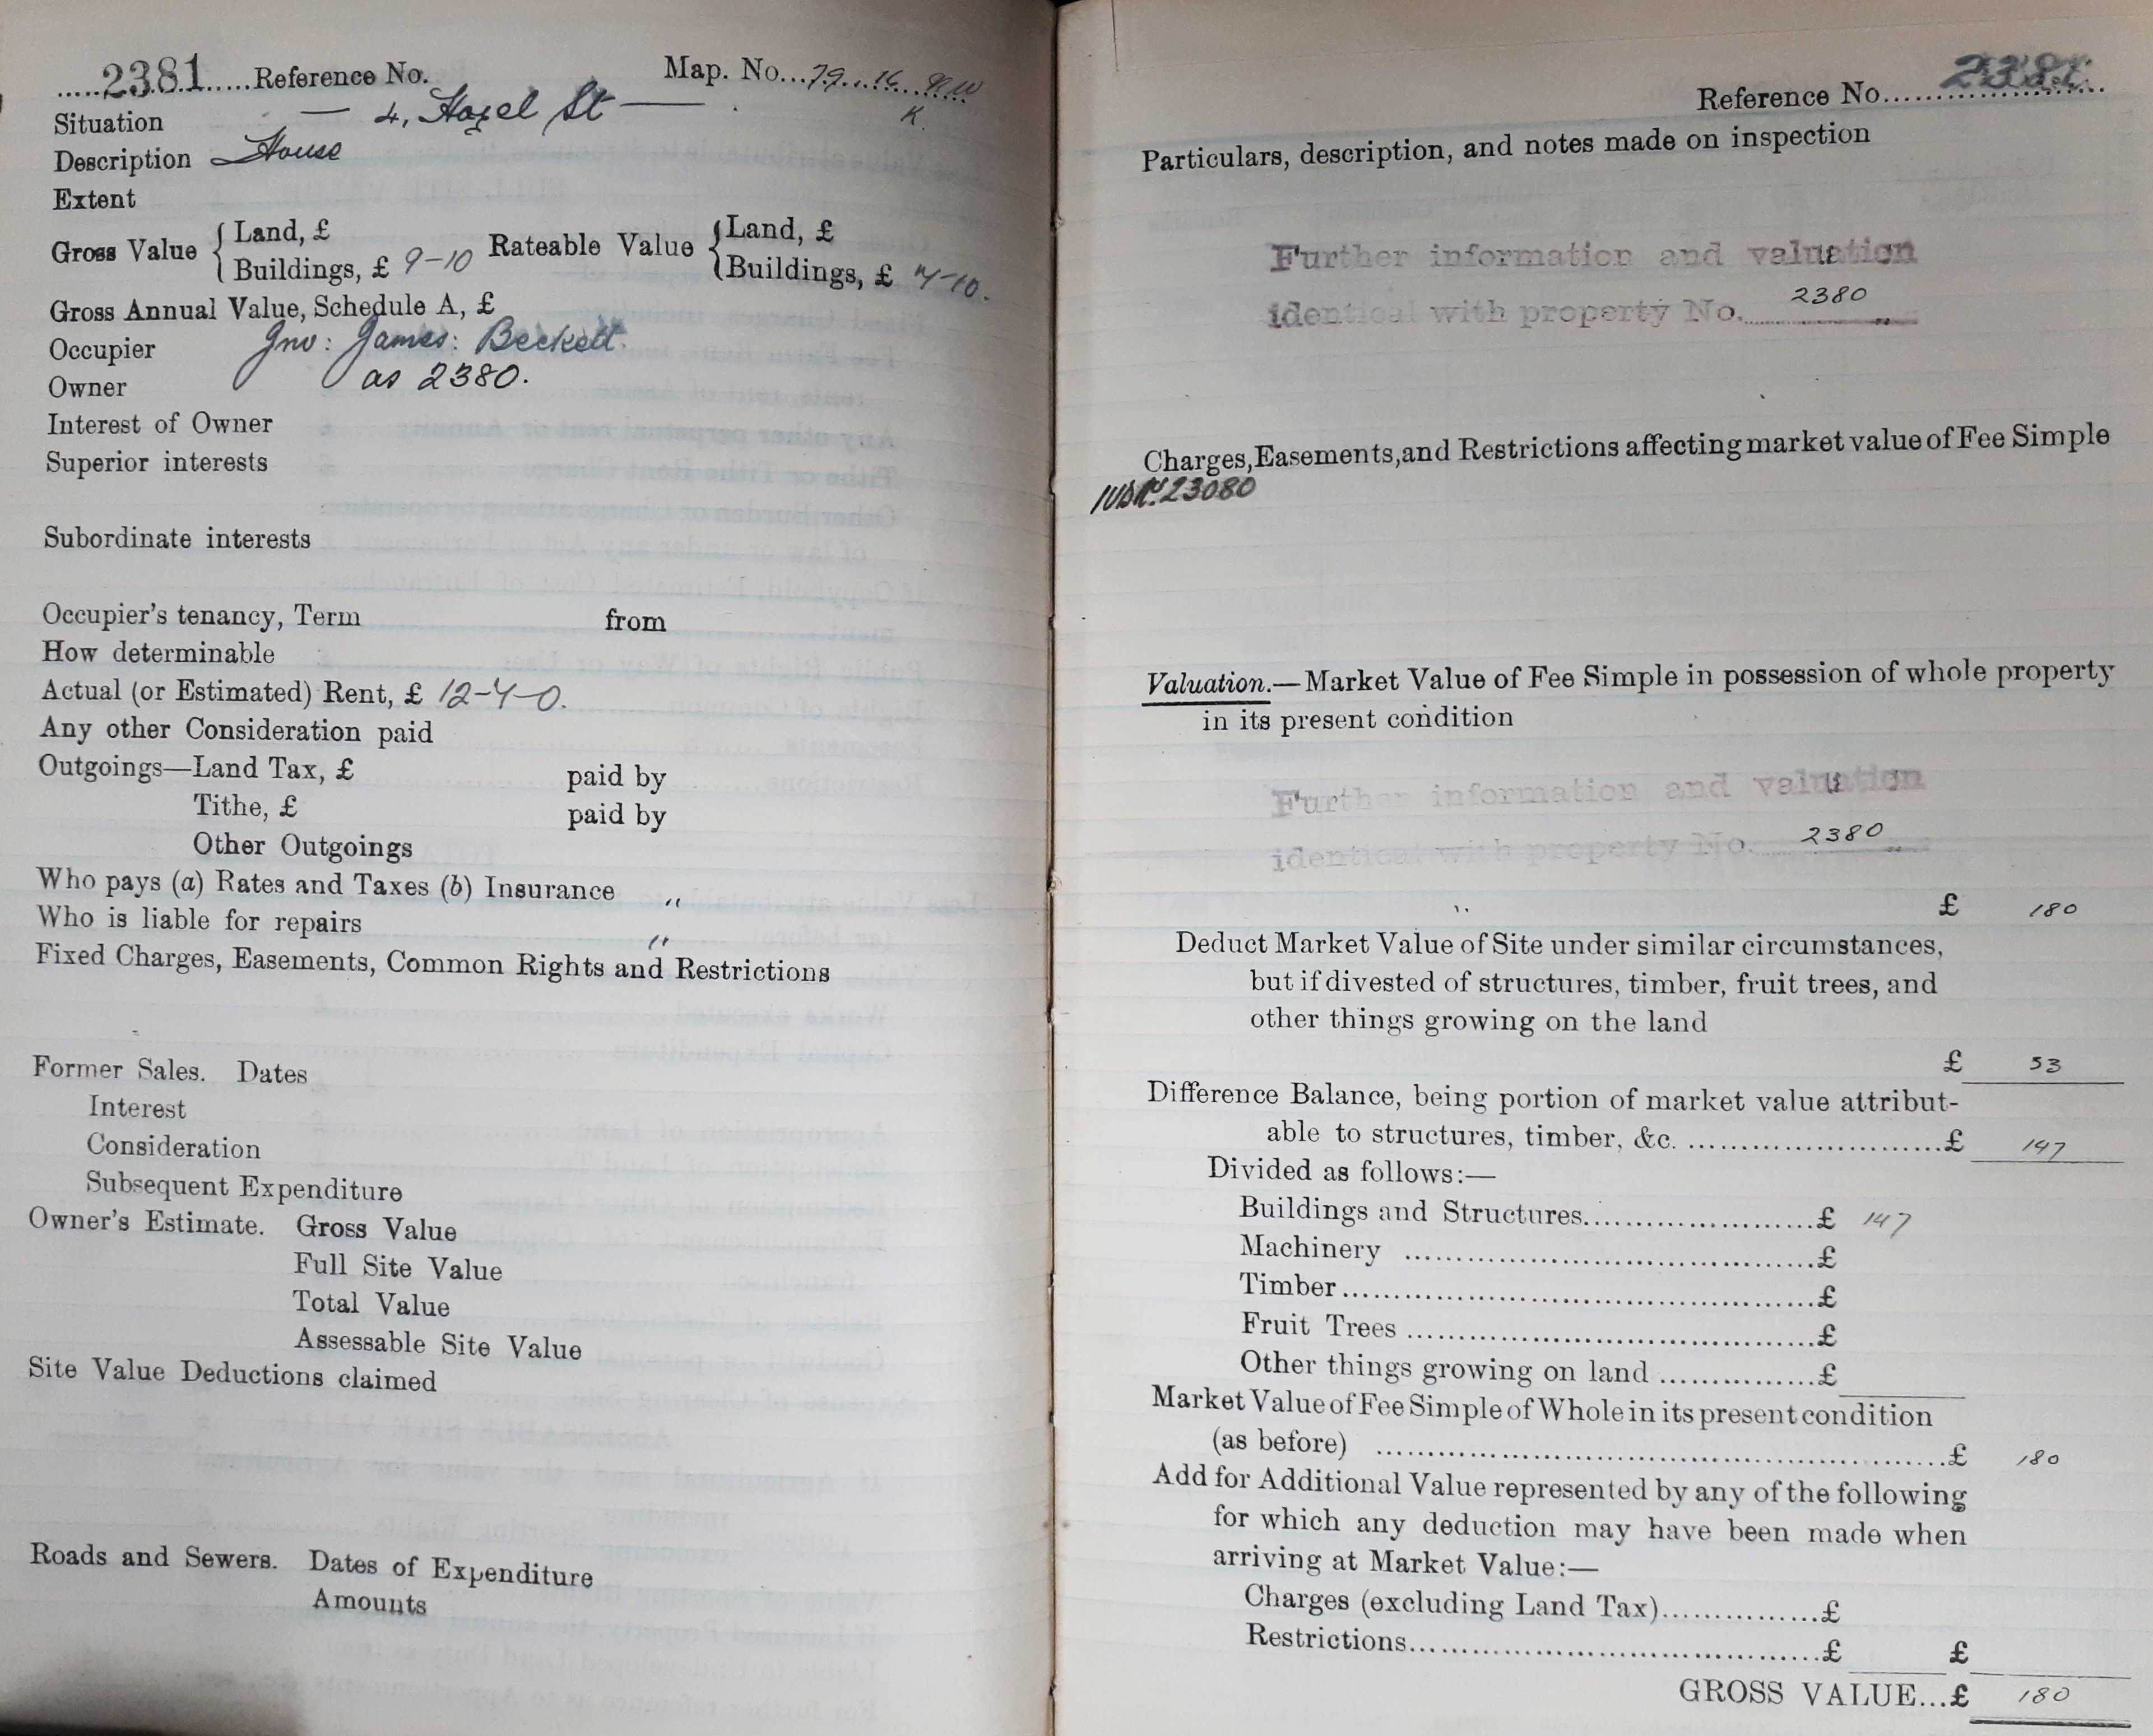 2381 Reference No. Map. No. 79.16
K.
Situation — 4, Hazel St —
Description House
Extent
Gross Value { Land, £ Rateable Value { Land, £
Buildings, £ 9-10 Buildings, £ 7-10.
Gross Annual Value, Schedule A, £
Occupier Jno: James: Beckett.
Owner as 2380.
Interest of Owner
Superior interests
Subordinate interests
Occupier's tenancy, Term from
How determinable
Actual (or Estimated) Rent, £ 12-7-0.
Any other Consideration paid
Outgoings—Land Tax, £ paid by
Tithe, £ paid by
Other Outgoings
Who pays (a) Rates and Taxes (b) Insurance "
Who is liable for repairs "
Fixed Charges, Easements, Common Rights and Restrictions
Former Sales. Dates
Interest
Consideration
Subsequent Expenditure
Owner's Estimate. Gross Value
Full Site Value
Total Value
Assessable Site Value
Site Value Deductions claimed
Roads and Sewers. Dates of Expenditure
Amounts
Reference No. 2381
Particulars, description, and notes made on inspection
Further information and valuation
identical with property No. 2380
Charges, Easements, and Restrictions affecting market value of Fee Simple
23080
Valuation.—Market Value of Fee Simple in possession of whole property
in its present condition
Further information and valuation
identical with property No. 2380
£ 180
Deduct Market Value of Site under similar circumstances,
but if divested of structures, timber, fruit trees, and
other things growing on the land
£ 33
Difference Balance, being portion of market value attribut-
able to structures, timber, &c. ........................£ 147
Divided as follows:—
Buildings and Structures........................£ 147
Machinery ........................£
Timber........................£
Fruit Trees ........................£
Other things growing on land ...............£
Market Value of Fee Simple of Whole in its present condition
(as before) ........................£ 180
Add for Additional Value represented by any of the following
for which any deduction may have been made when
arriving at Market Value:—
Charges (excluding Land Tax)...............£
Restrictions........................£ £
GROSS VALUE...£ 180